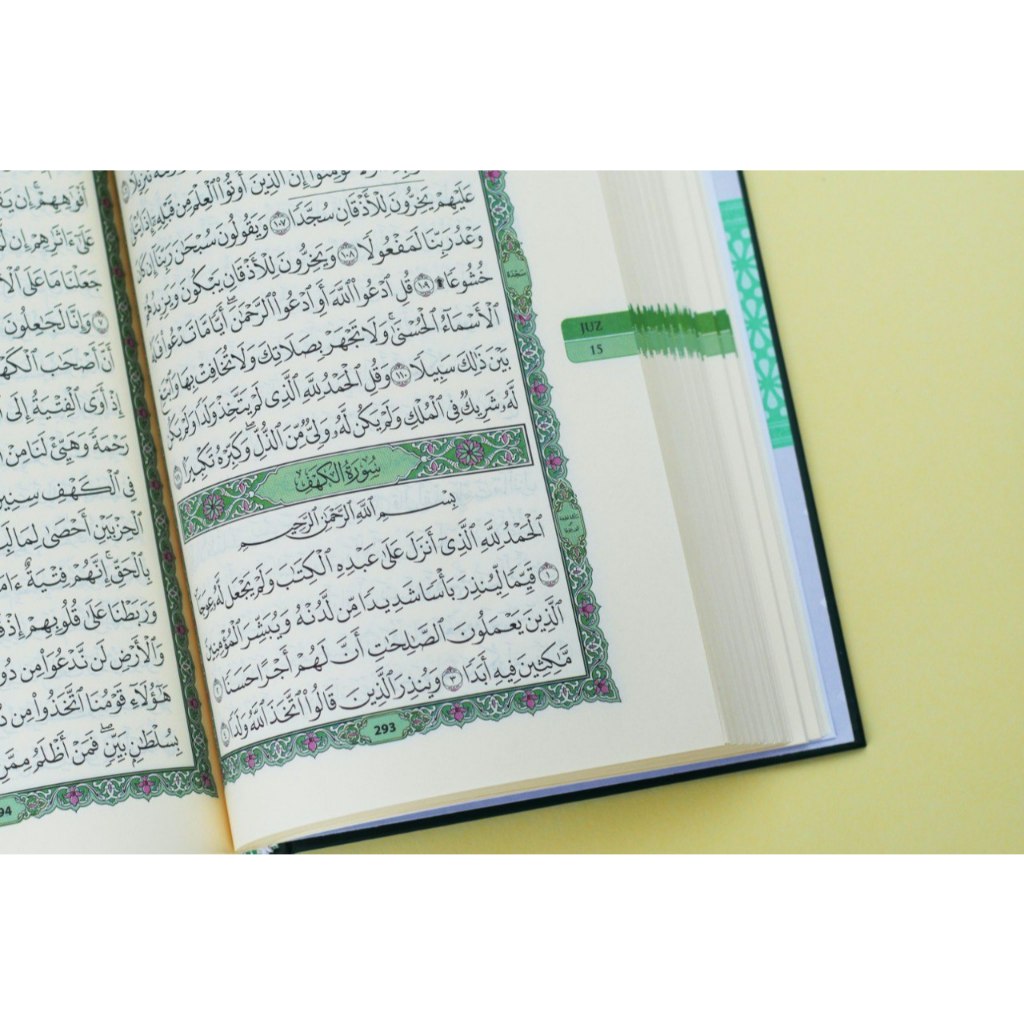 إِنَّ ٱلَّذِينَ أُوتُوا۟ ٱلْعِلْمَ مِن قَبْلِهِۦٓ إِذَا يُتْلَىٰ
عَلَيْهِمْ يَخِرُّونَ لِلْأَذْقَانِ سُجَّدًا ١٠٧ وَيَقُولُونَ سُبْحَٰنَ رَبِّنَآ إِن كَانَ
وَعْدُ رَبِّنَا لَمَفْعُولًا ١٠٨ وَيَخِرُّونَ لِلْأَذْقَانِ يَبْكُونَ وَيَزِيدُهُمْ
خُشُوعًا ۩ ١٠٩ قُلِ ٱدْعُوا۟ ٱللَّهَ أَوِ ٱدْعُوا۟ ٱلرَّحْمَٰنَ ۖ أَيًّا مَّا تَدْعُوا۟ فَلَهُ
ٱلْأَسْمَآءُ ٱلْحُسْنَىٰ ۚ وَلَا تَجْهَرْ بِصَلَاتِكَ وَلَا تُخَافِتْ بِهَا وَٱبْتَغِ
بَيْنَ ذَٰلِكَ سَبِيلًا ١١٠ وَقُلِ ٱلْحَمْدُ لِلَّهِ ٱلَّذِى لَمْ يَتَّخِذْ وَلَدًا وَلَمْ يَكُن
لَّهُۥ شَرِيكٌ فِى ٱلْمُلْكِ وَلَمْ يَكُن لَّهُۥ وَلِىٌّ مِّنَ ٱلذُّلِّ ۖ وَكَبِّرْهُ تَكْبِيرًۢا ١١١
سُورَةُ الكَهْفِ
بِسْمِ ٱللَّهِ ٱلرَّحْمَٰنِ ٱلرَّحِيمِ
ٱلْحَمْدُ لِلَّهِ ٱلَّذِىٓ أَنزَلَ عَلَىٰ عَبْدِهِ ٱلْكِتَٰبَ وَلَمْ يَجْعَل لَّهُۥ عِوَجَا
١ قَيِّمًا لِّيُنذِرَ بَأْسًا شَدِيدًا مِّن لَّدُنْهُ وَيُبَشِّرَ ٱلْمُؤْمِنِينَ
ٱلَّذِينَ يَعْمَلُونَ ٱلصَّٰلِحَٰتِ أَنَّ لَهُمْ أَجْرًا حَسَنًا ٢
مَّٰكِثِينَ فِيهِ أَبَدًا ٣ وَيُنذِرَ ٱلَّذِينَ قَالُوا۟ ٱتَّخَذَ ٱللَّهُ وَلَدًا ٤
293
سَجْدَة
JUZ
15
أَفْوَٰهِهِمْ ۚ إِن
عَلَىٰٓ ءَاثَٰرِهِمْ إِن
جَعَلْنَا مَا عَلَى
٧ وَإِنَّا لَجَٰعِلُونَ
أَنَّ أَصْحَٰبَ
إِذْ أَوَى ٱلْفِتْيَةُ إِلَى
رَحْمَةً وَهَيِّئْ لَنَا مِنْ
فِى ٱلْكَهْفِ سِنِينَ
ٱلْحِزْبَيْنِ أَحْصَىٰ لِمَا
بِٱلْحَقِّ ۚ إِنَّهُمْ فِتْيَةٌ
وَرَبَطْنَا عَلَىٰ قُلُوبِهِمْ إِذْ
وَٱلْأَرْضِ لَن نَّدْعُوَا۟ مِن
هَٰٓؤُلَآءِ قَوْمُنَا ٱتَّخَذُوا۟ مِن
بِسُلْطَٰنٍۭ بَيِّنٍ ۖ فَمَنْ أَظْلَمُ مِمَّنِ